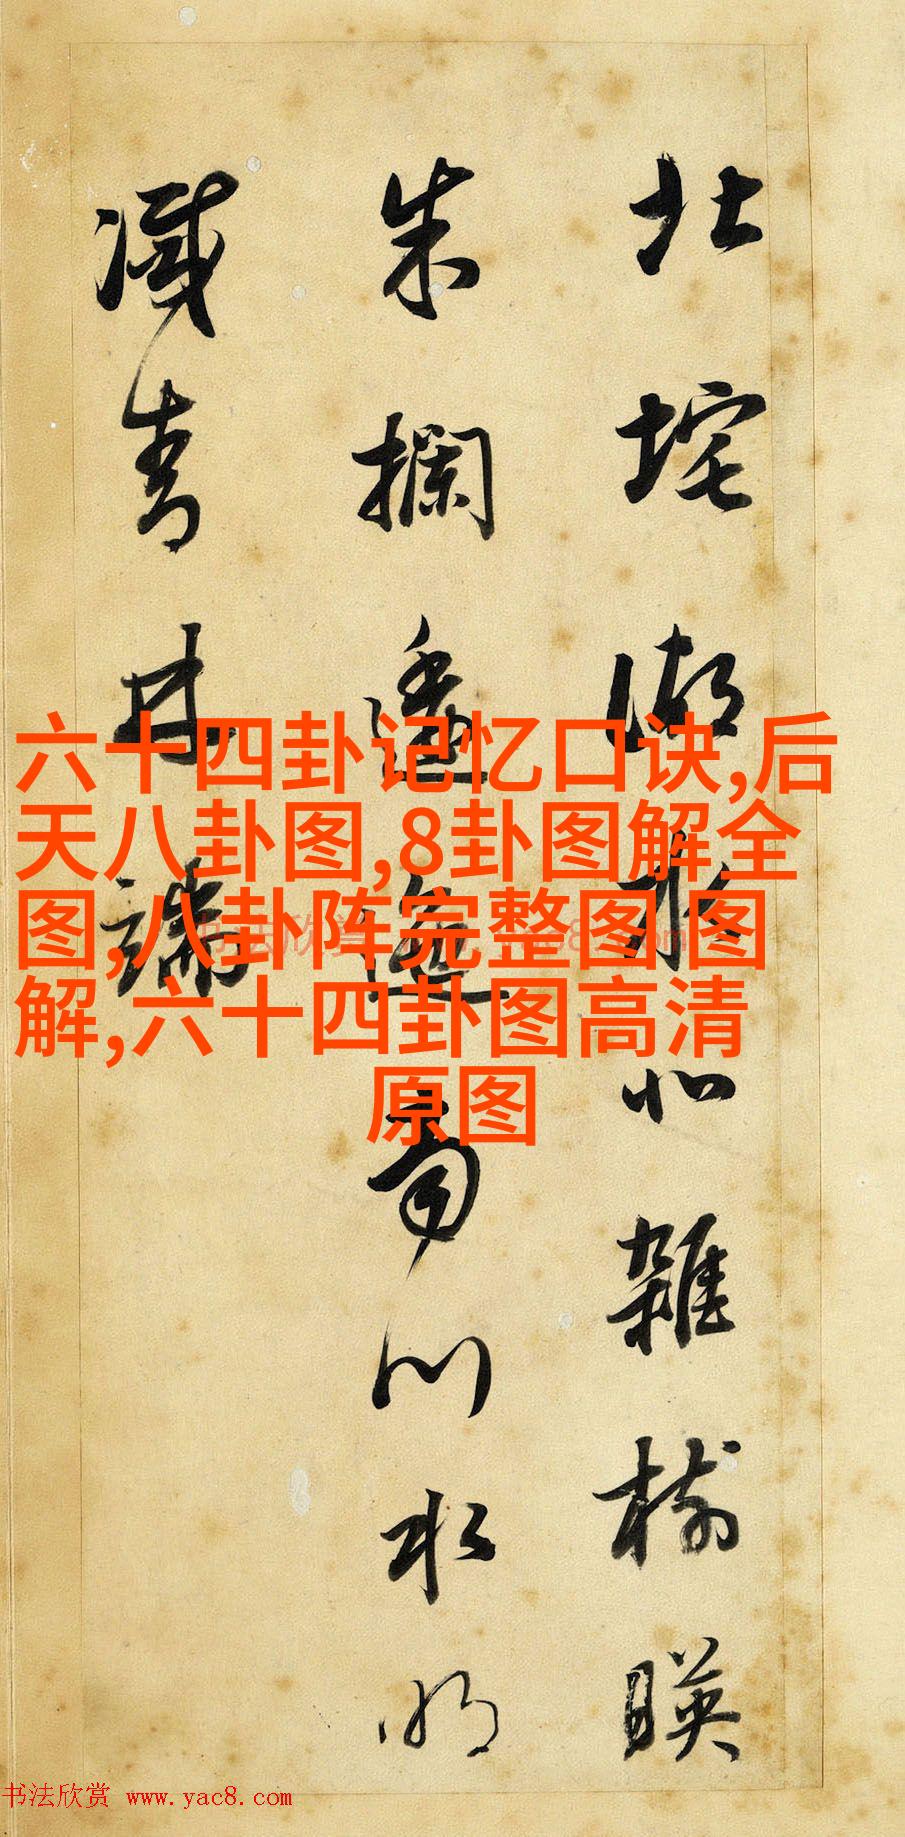 北垞湖水北雜樹暎
朱欄逶迤南川水明
滅青林端
六十四卦记忆口诀,后
天八卦图,8卦图解全
图,八卦阵完整图图
解,六十四卦图高清
原图
书法欣赏 www.yac8.com